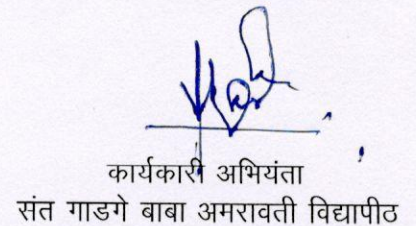 कार्यकारी अभियंता
संत गाडगे बाबा अमरावती विद्यापीठ